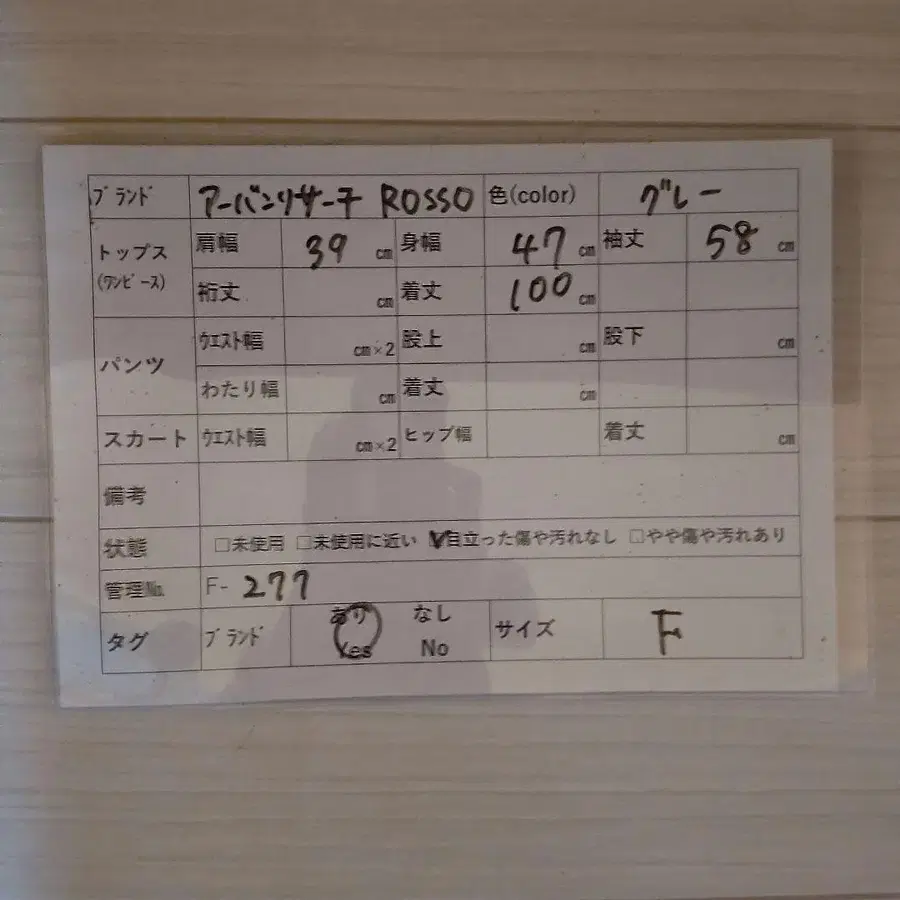 ブランド アーバンリサーチ ROSSO 色(color) グレー
トップス (ワンピース) 肩幅 39 cm 身幅 47 cm 袖丈 58 cm
裄丈 cm 着丈 100 cm
パンツ ウエスト幅 cm×2 股上 cm 股下 cm
わたり幅 cm 着丈 cm
スカート ウエスト幅 cm×2 ヒップ幅 着丈 cm
備考
状態 □未使用 □未使用に近い ☑目立った傷や汚れなし □やや傷や汚れあり
管理No. F- 277
タグ ブランド あり Yes なし No サイズ F